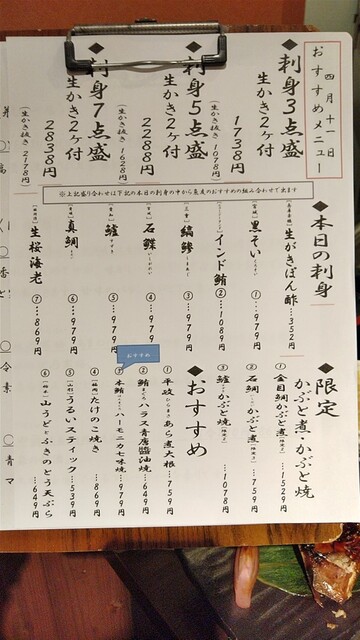 四月十一日
おすすめメニュー
◆刺身3点盛
生かき2ケ付
1738円
(生かき抜き)1078円
◆刺身5点盛
生かき2ケ付
2288円
(生かき抜き)1628円
◆刺身7点盛
生かき2ケ付
2838円
(生かき抜き)2178円
※上記盛り合わせは下記の本日の刺身の中から店主のおすすめの組み合わせできます
◆本日の刺身
生がきぽん酢…352円
①黒そい…979円
②インド鮪…1089円
③縞鯵…979円
④石鰈…979円
⑤鱸…979円
⑥真鯛…979円
⑦生桜海老…869円
◆限定
かぶと煮・かぶと焼
①金目鯛かぶと煮…1529円
②石鯛かぶと煮…759円
③鱸かぶと焼…1078円
◆おすすめ
①平政あら煮大根…759円
②鮪ハラス青唐醤油焼…649円
おすすめ
③本鮪ハーモニカ七味焼…979円
④たけのこ焼き…869円
⑤うるいスティック…539円
⑥山うどとふきのとう天ぷら…649円